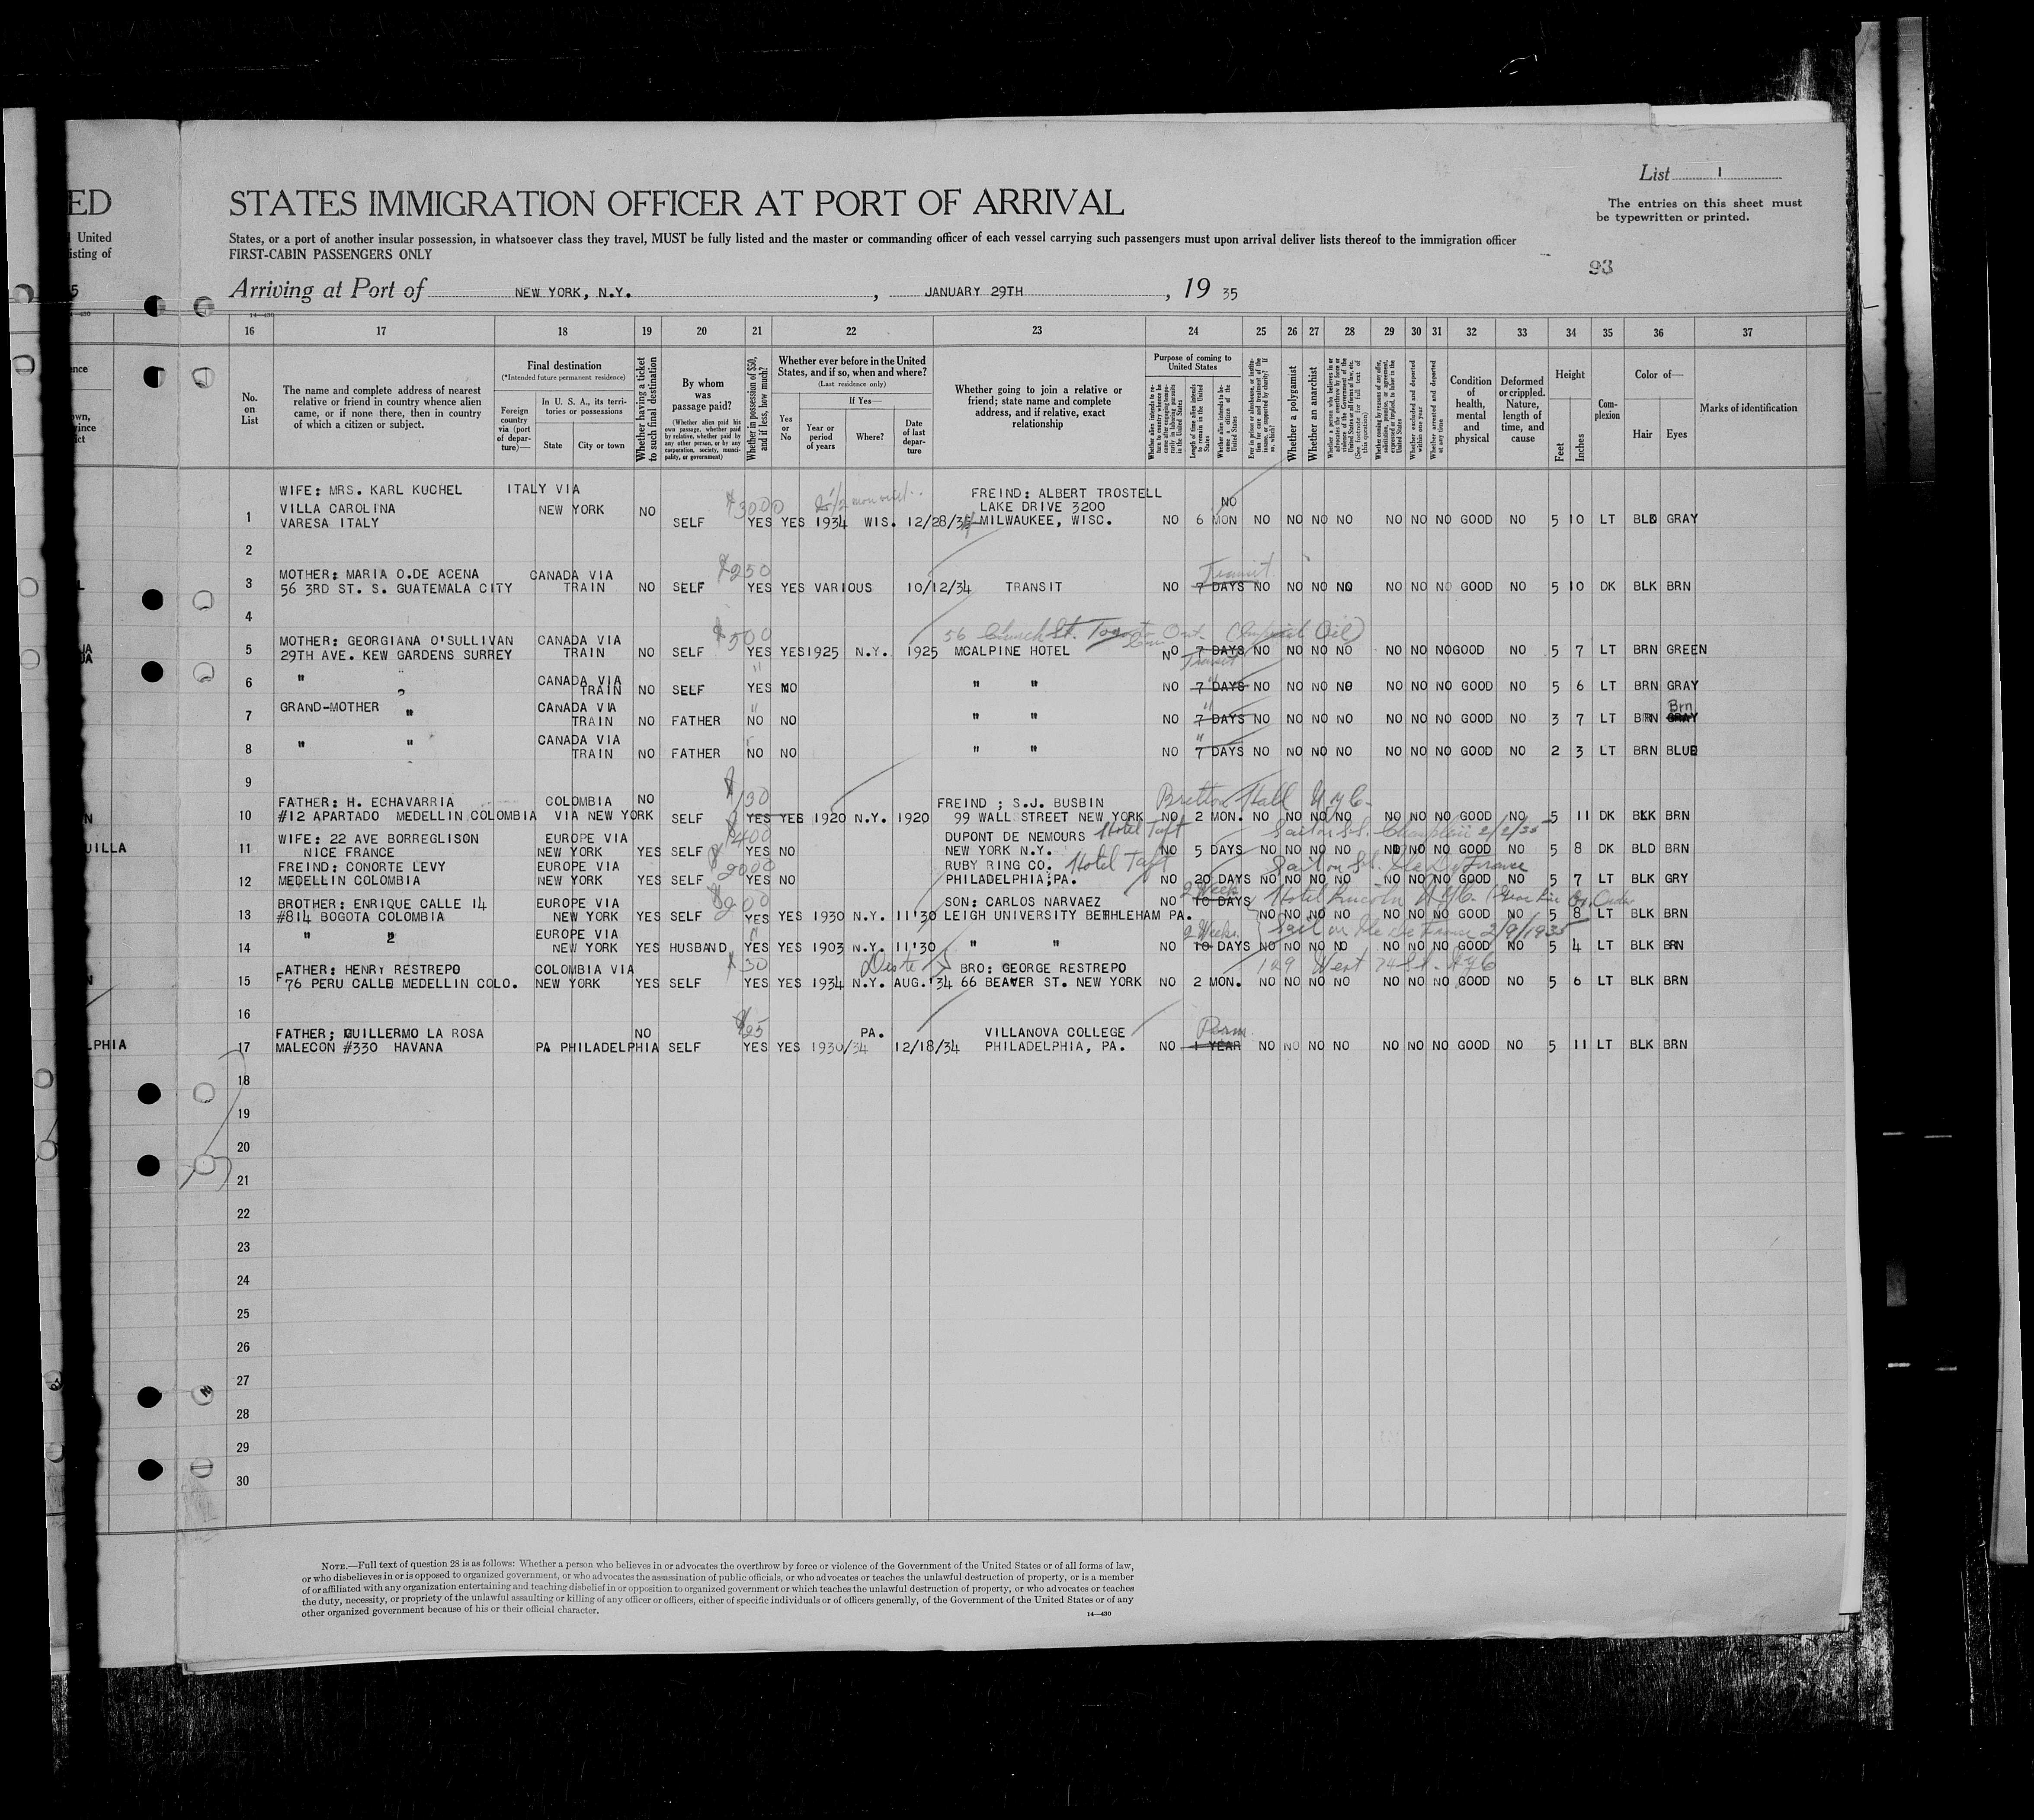 ED
United
isting of
5
List 1
STATES IMMIGRATION OFFICER AT PORT OF ARRIVAL
The entries on this sheet must
be typewritten or printed.
States, or a port of another insular possession, in whatsoever class they travel, MUST be fully listed and the master or commanding officer of each vessel carrying such passengers must upon arrival deliver lists thereof to the immigration officer
FIRST-CABIN PASSENGERS ONLY
93
Arriving at Port of NEW YORK, N.Y. , JANUARY 29TH , 19 35
16 17 18 19 20 21 22 23 24 25 26 27 28 29 30 31 32 33 34 35 36 37
No. on List
The name and complete address of nearest relative or friend in country whence alien came, or if none there, then in country of which a citizen or subject.
Final destination
(*Intended future permanent residence)
Foreign country via (port of departure)—
In U. S. A., its territories or possessions
State City or town
Whether having a ticket to such final destination
By whom was passage paid?
(Whether alien paid his own passage, whether paid by relative, whether paid by any other person, or by any corporation, society, municipality, or government)
Whether in possession of $50, and if less, how much?
Whether ever before in the United States, and if so, when and where?
(Last residence only)
Yes or No
If Yes—
Year or period of years
Where?
Date of last departure
Whether going to join a relative or friend; state name and complete address, and if relative, exact relationship
Purpose of coming to United States
Whether alien intends to return to country whence he came after engaging temporarily in laboring pursuits in the United States
Length of time alien intends to remain in the United States
Whether alien intends to become a citizen of the United States
Whether a polygamist
Whether an anarchist
Condition of health, mental and physical
Deformed or crippled. Nature, length of time, and cause
Height
Feet Inches
Complexion
Color of—
Hair Eyes
Marks of identification
WIFE: MRS. KARL KUCHEL ITALY VIA FREIND: ALBERT TROSTELL
VILLA CAROLINA NEW YORK NO $3000 LAKE DRIVE 3200 NO
1 VARESA ITALY SELF YES YES 1934 WIS. 12/28/34 MILWAUKEE, WISC. NO 6 MON NO NO NO NO NO NO NO GOOD NO 5 10 LT BLD GRAY
2
MOTHER: MARIA O.DE ACENA CANADA VIA $250 Transit
3 56 3RD ST. S. GUATEMALA CITY TRAIN NO SELF YES YES VARIOUS 10/12/34 TRANSIT NO 7 DAYS NO NO NO NO NO NO NO GOOD NO 5 10 DK BLK BRN
4
MOTHER: GEORGIANA O'SULLIVAN CANADA VIA $500 56 Church St. Toronto Ont. (Imperial Oil)
5 29TH AVE. KEW GARDENS SURREY TRAIN NO SELF YES YES 1925 N.Y. 1925 MCALPINE HOTEL NO 7 DAYS NO NO NO NO NO NO NO GOOD NO 5 7 LT BRN GREEN
" " CANADA VIA " Transit
6 TRAIN NO SELF YES NO " " NO 7 DAYS NO NO NO NO NO NO NO GOOD NO 5 6 LT BRN GRAY
GRAND-MOTHER " CANADA VIA " " Brn
7 TRAIN NO FATHER NO NO " " NO 7 DAYS NO NO NO NO NO NO NO GOOD NO 3 7 LT BRN GRAY
" " CANADA VIA "
8 TRAIN NO FATHER NO NO " " NO 7 DAYS NO NO NO NO NO NO NO GOOD NO 2 3 LT BRN BLUE
9
FATHER: H. ECHAVARRIA COLOMBIA NO $130 FREIND ; S.J. BUSBIN Bretton Hall N.Y.C.
10 #12 APARTADO MEDELLIN COLOMBIA VIA NEW YORK SELF YES YES 1920 N.Y. 1920 99 WALL STREET NEW YORK NO 2 MON. NO NO NO NO NO NO NO GOOD NO 5 11 DK BLK BRN
UILLA WIFE: 22 AVE BORREGLISON EUROPE VIA $400 DUPONT DE NEMOURS Hotel Taft Sail on S.S. Champlain 2/2/35
11 NICE FRANCE NEW YORK YES SELF YES NO NEW YORK N.Y. NO 5 DAYS NO NO NO NO NO NO NO GOOD NO 5 8 DK BLD BRN
FREIND: CONORTE LEVY EUROPE VIA $2000 RUBY RING CO. Hotel Taft Sail on S.S. Ile De France
12 MEDELLIN COLOMBIA NEW YORK YES SELF YES NO PHILADELPHIA;PA. NO 20 DAYS NO NO NO NO NO NO NO GOOD NO 5 7 LT BLK GRY
BROTHER: ENRIQUE CALLE 14 EUROPE VIA $200 SON: CARLOS NARVAEZ NO 2 Weeks 10 DAYS Hotel Lincoln N.Y.C.
13 #814 BOGOTA COLOMBIA NEW YORK YES SELF YES YES 1930 N.Y. 11'30 LEIGH UNIVERSITY BETHLEHAM PA. NO NO NO NO NO NO NO GOOD NO 5 8 LT BLK BRN
" 2 EUROPE VIA " 2 Weeks Sail on Ile De France 2/9/1935
14 NEW YORK YES HUSBAND YES YES 1903 N.Y. 11'30 " " NO 10 DAYS NO NO NO NO NO NO NO GOOD NO 5 4 LT BLK BRN
FATHER: HENRY RESTREPO COLOMBIA VIA $30 BRO: GEORGE RESTREPO 129 West 74 St. N.Y.C
15 76 PERU CALLE MEDELLIN COLO. NEW YORK YES SELF YES YES 1934 N.Y. AUG.'34 66 BEAVER ST. NEW YORK NO 2 MON. NO NO NO NO NO NO NO GOOD NO 5 6 LT BLK BRN
16
FATHER; GUILLERMO LA ROSA NO $25 PA. VILLANOVA COLLEGE Perm.
LPHIA 17 MALECON #330 HAVANA PA PHILADELPHIA SELF YES YES 1930/34 12/18/34 PHILADELPHIA, PA. NO 1 YEAR NO NO NO NO NO NO NO GOOD NO 5 11 LT BLK BRN
18
19
20
21
22
23
24
25
26
27
28
29
30
NOTE.—Full text of question 28 is as follows: Whether a person who believes in or advocates the overthrow by force or violence of the Government of the United States or of all forms of law,
or who disbelieves in or is opposed to organized government, or who advocates the assassination of public officials, or who advocates or teaches the unlawful destruction of property, or is a member
of or affiliated with any organization entertaining and teaching disbelief in or opposition to organized government or which teaches the unlawful destruction of property, or who advocates or teaches
the duty, necessity, or propriety of the unlawful assaulting or killing of any officer or officers, either of specific individuals or of officers generally, of the Government of the United States or of any
other organized government because of his or their official character.
14—430